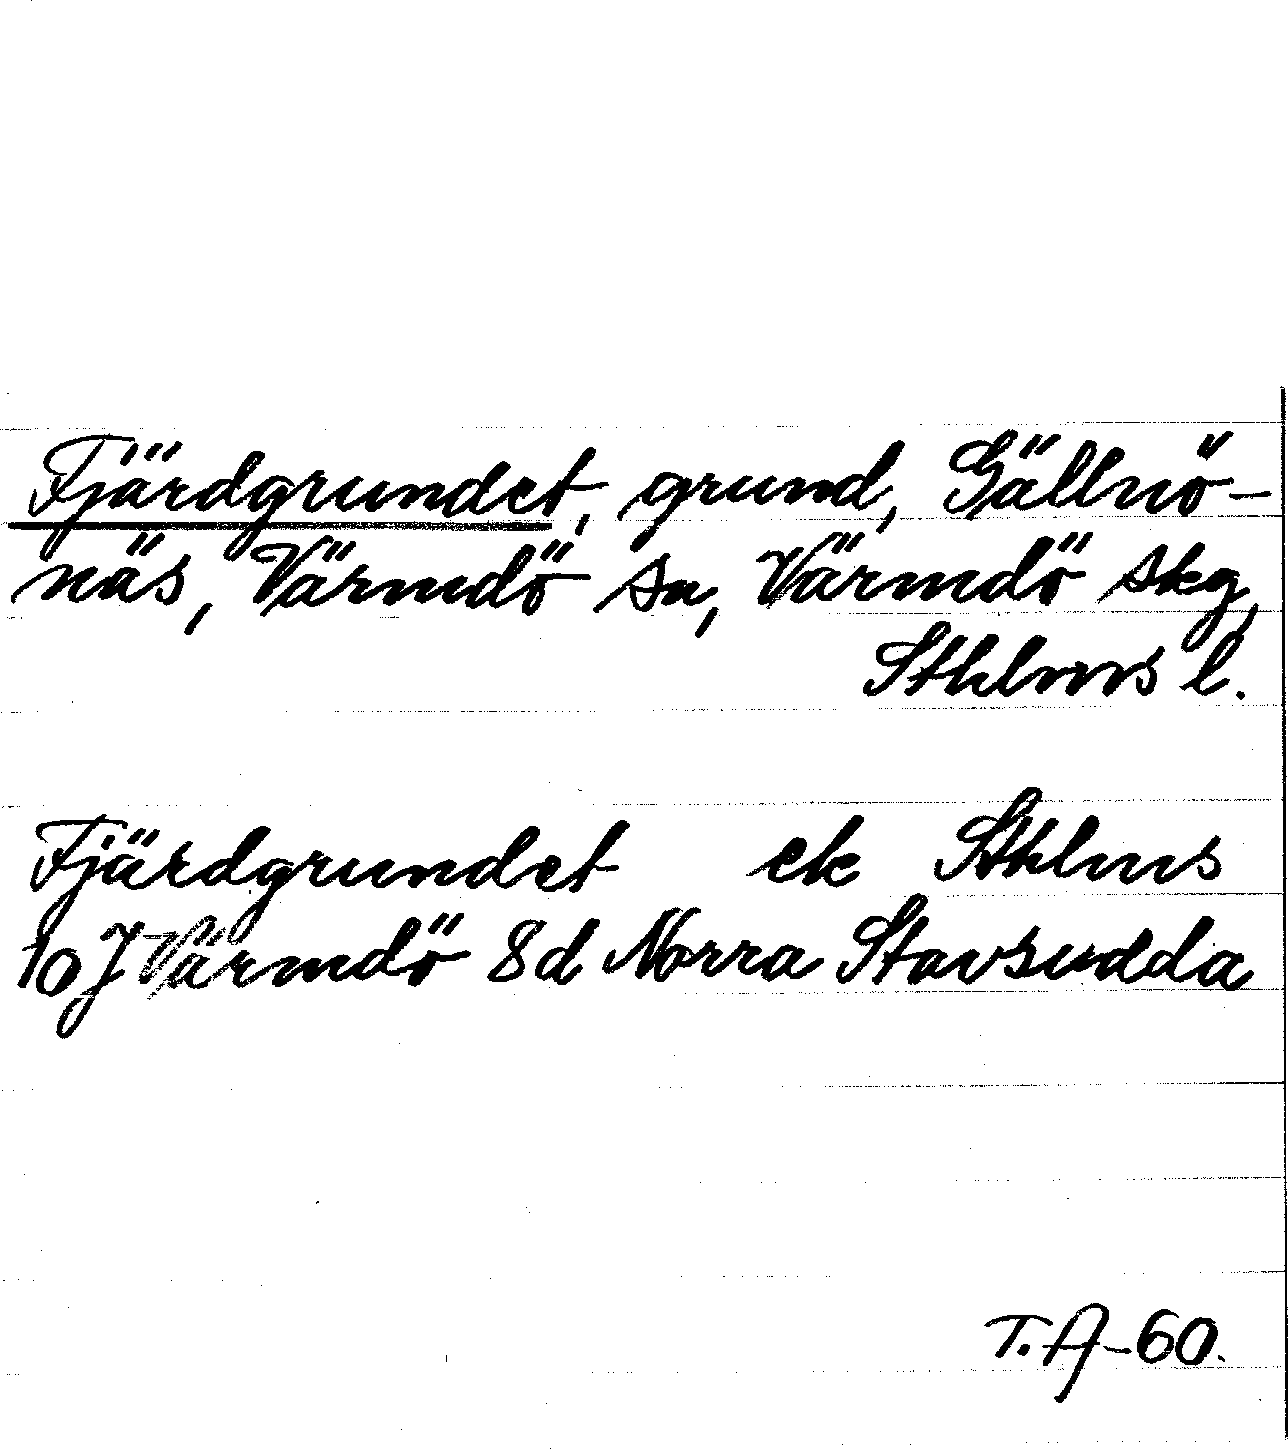 Fjärdgrundet, grund, Gällnö-
näs, Värmdö sn, Värmdö skg,
Sthlms l.
Fjärdgrundet ek Sthlms
10 J Värmdö 8d Norra Stavsudda
T. A-60.